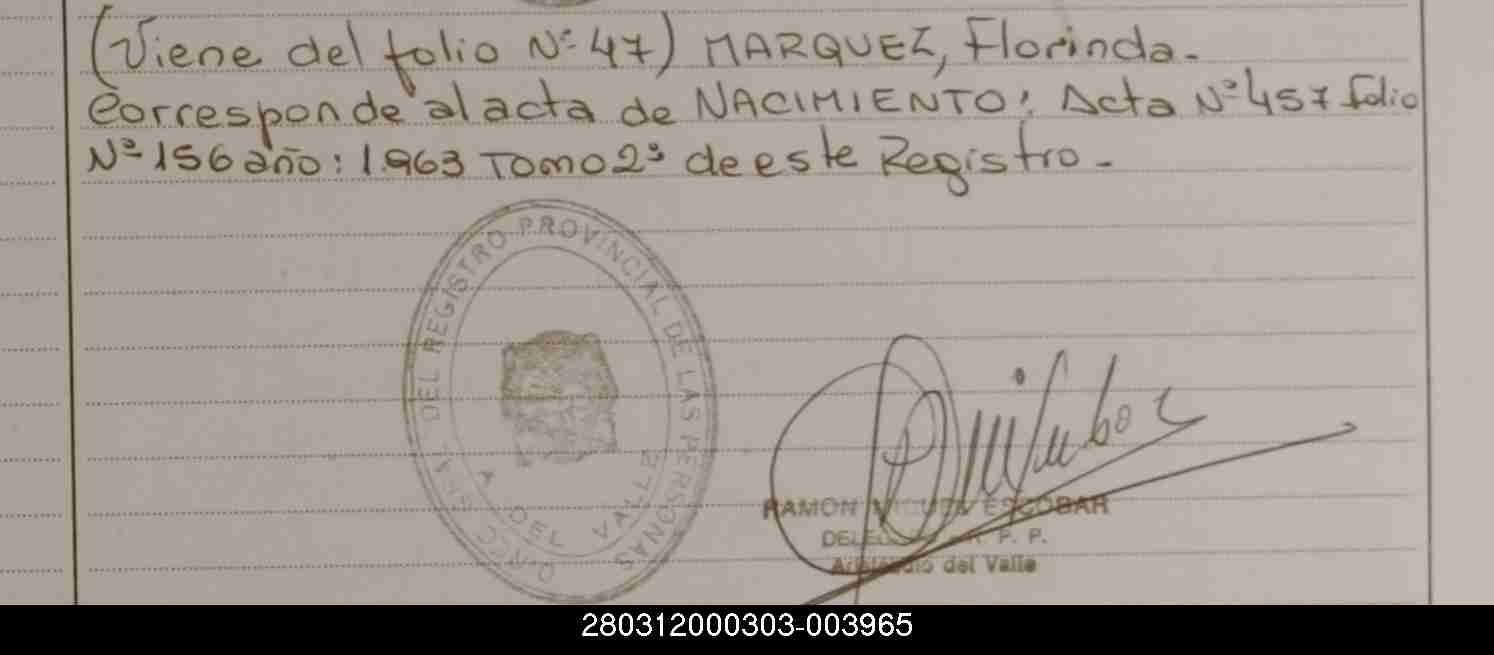 (Viene del folio Nº 47) MARQUEZ, Florinda.
Corresponde al acta de NACIMIENTO: Acta Nº 457 folio
Nº 156 año: 1.963 Tomo 2º de este Registro.
DEL REGISTRO PROVINCIAL DE LAS PERSONAS
A DEL VALLE
RAMON MIGUEL ESCOBAR
R. P. P.
del Valle
280312000303-003965